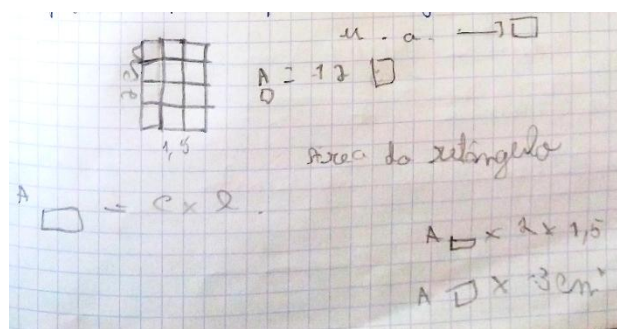 u . a . → □
A □ = 12 □
2
1,5
Area do retângulo
A □ = c x l .
A □ x 2 x 1,5
A □ x 3 cm²